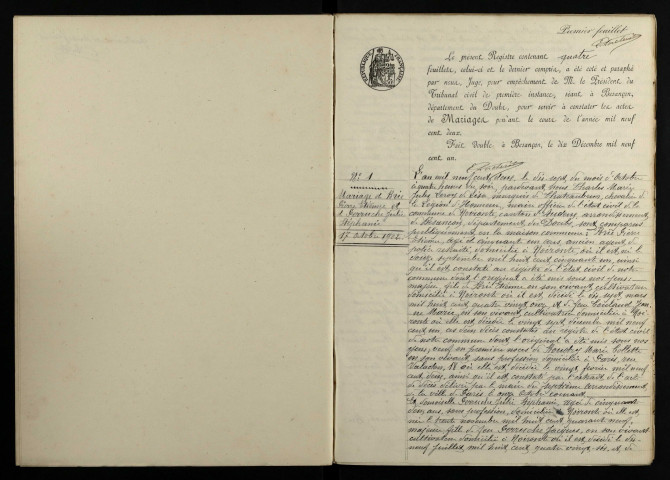 Premier feuillet
Le présent Registre contenant quatre
feuillets, celui-ci et le dernier compris, a été coté et paraphé
par nous, Juge, pour empêchement de M. le Président du
Tribunal civil de première instance, séant à Besançon,
département du Doubs, pour servir à constater les actes
de Mariages pendant le cours de l'année mil neuf
cent deux.
Fait double, à Besançon, le dix Décembre mil neuf
cent un.
N° 1
Mariage de
et
Julie
Stéphanie
17 octobre 1902
L'an mil neuf cent deux, le dix sept du mois d'Octobre
à quatre heures du soir, pardevant nous Charles Marie
Jules, marquis de, chevalier de
la Légion d'Honneur, maire officier de l'état civil de la
commune de Noironte, canton d'Audeux, arrondissement
de Besançon, département du Doubs, sont comparus
publiquement, en la maison commune :
Etienne, âgé de cinquante un ans, ancien agent de
police retraité, domicilié à Noironte, où il est né le
douze septembre mil huit cent cinquante un, ainsi
qu'il est constaté au registre de l'état civil de notre
commune dont l'original a été mis sous nos yeux :
majeur, fils de Etienne, en son vivant, cultivateur
domicilié à Noironte où il est décédé le dix sept mars
mil huit cent quatre vingt onze, et de feu Jeanne
Marie, en son vivant, cultivatrice domiciliée à Noi-
ronte où elle est décédée le vingt sept décembre mil neuf
cent un, ces deux décès constatés au registre de l'état civil
de notre commune dont l'original a été mis sous nos
yeux, veuf en première noces de Marie Collette
en son vivant, sans profession domiciliée à Paris, rue
18 où elle est décédée le vingt février mil neuf
cent deux, ainsi qu'il est constaté par l'extrait de l'acte
de décès délivré par le maire du septième arrondissement
de la ville de Paris le onze Octobre courant.
Et demoiselle Julie Stéphanie, âgée de cinquante
deux ans, sans profession, domiciliée à Noironte où elle est
née le trente novembre mil huit cent quarante neuf,
majeure fille de feu Jacques, en son vivant
cultivateur domicilié à Noironte où il est décédé le dix-
neuf juillet mil huit cent quatre vingt six, et de